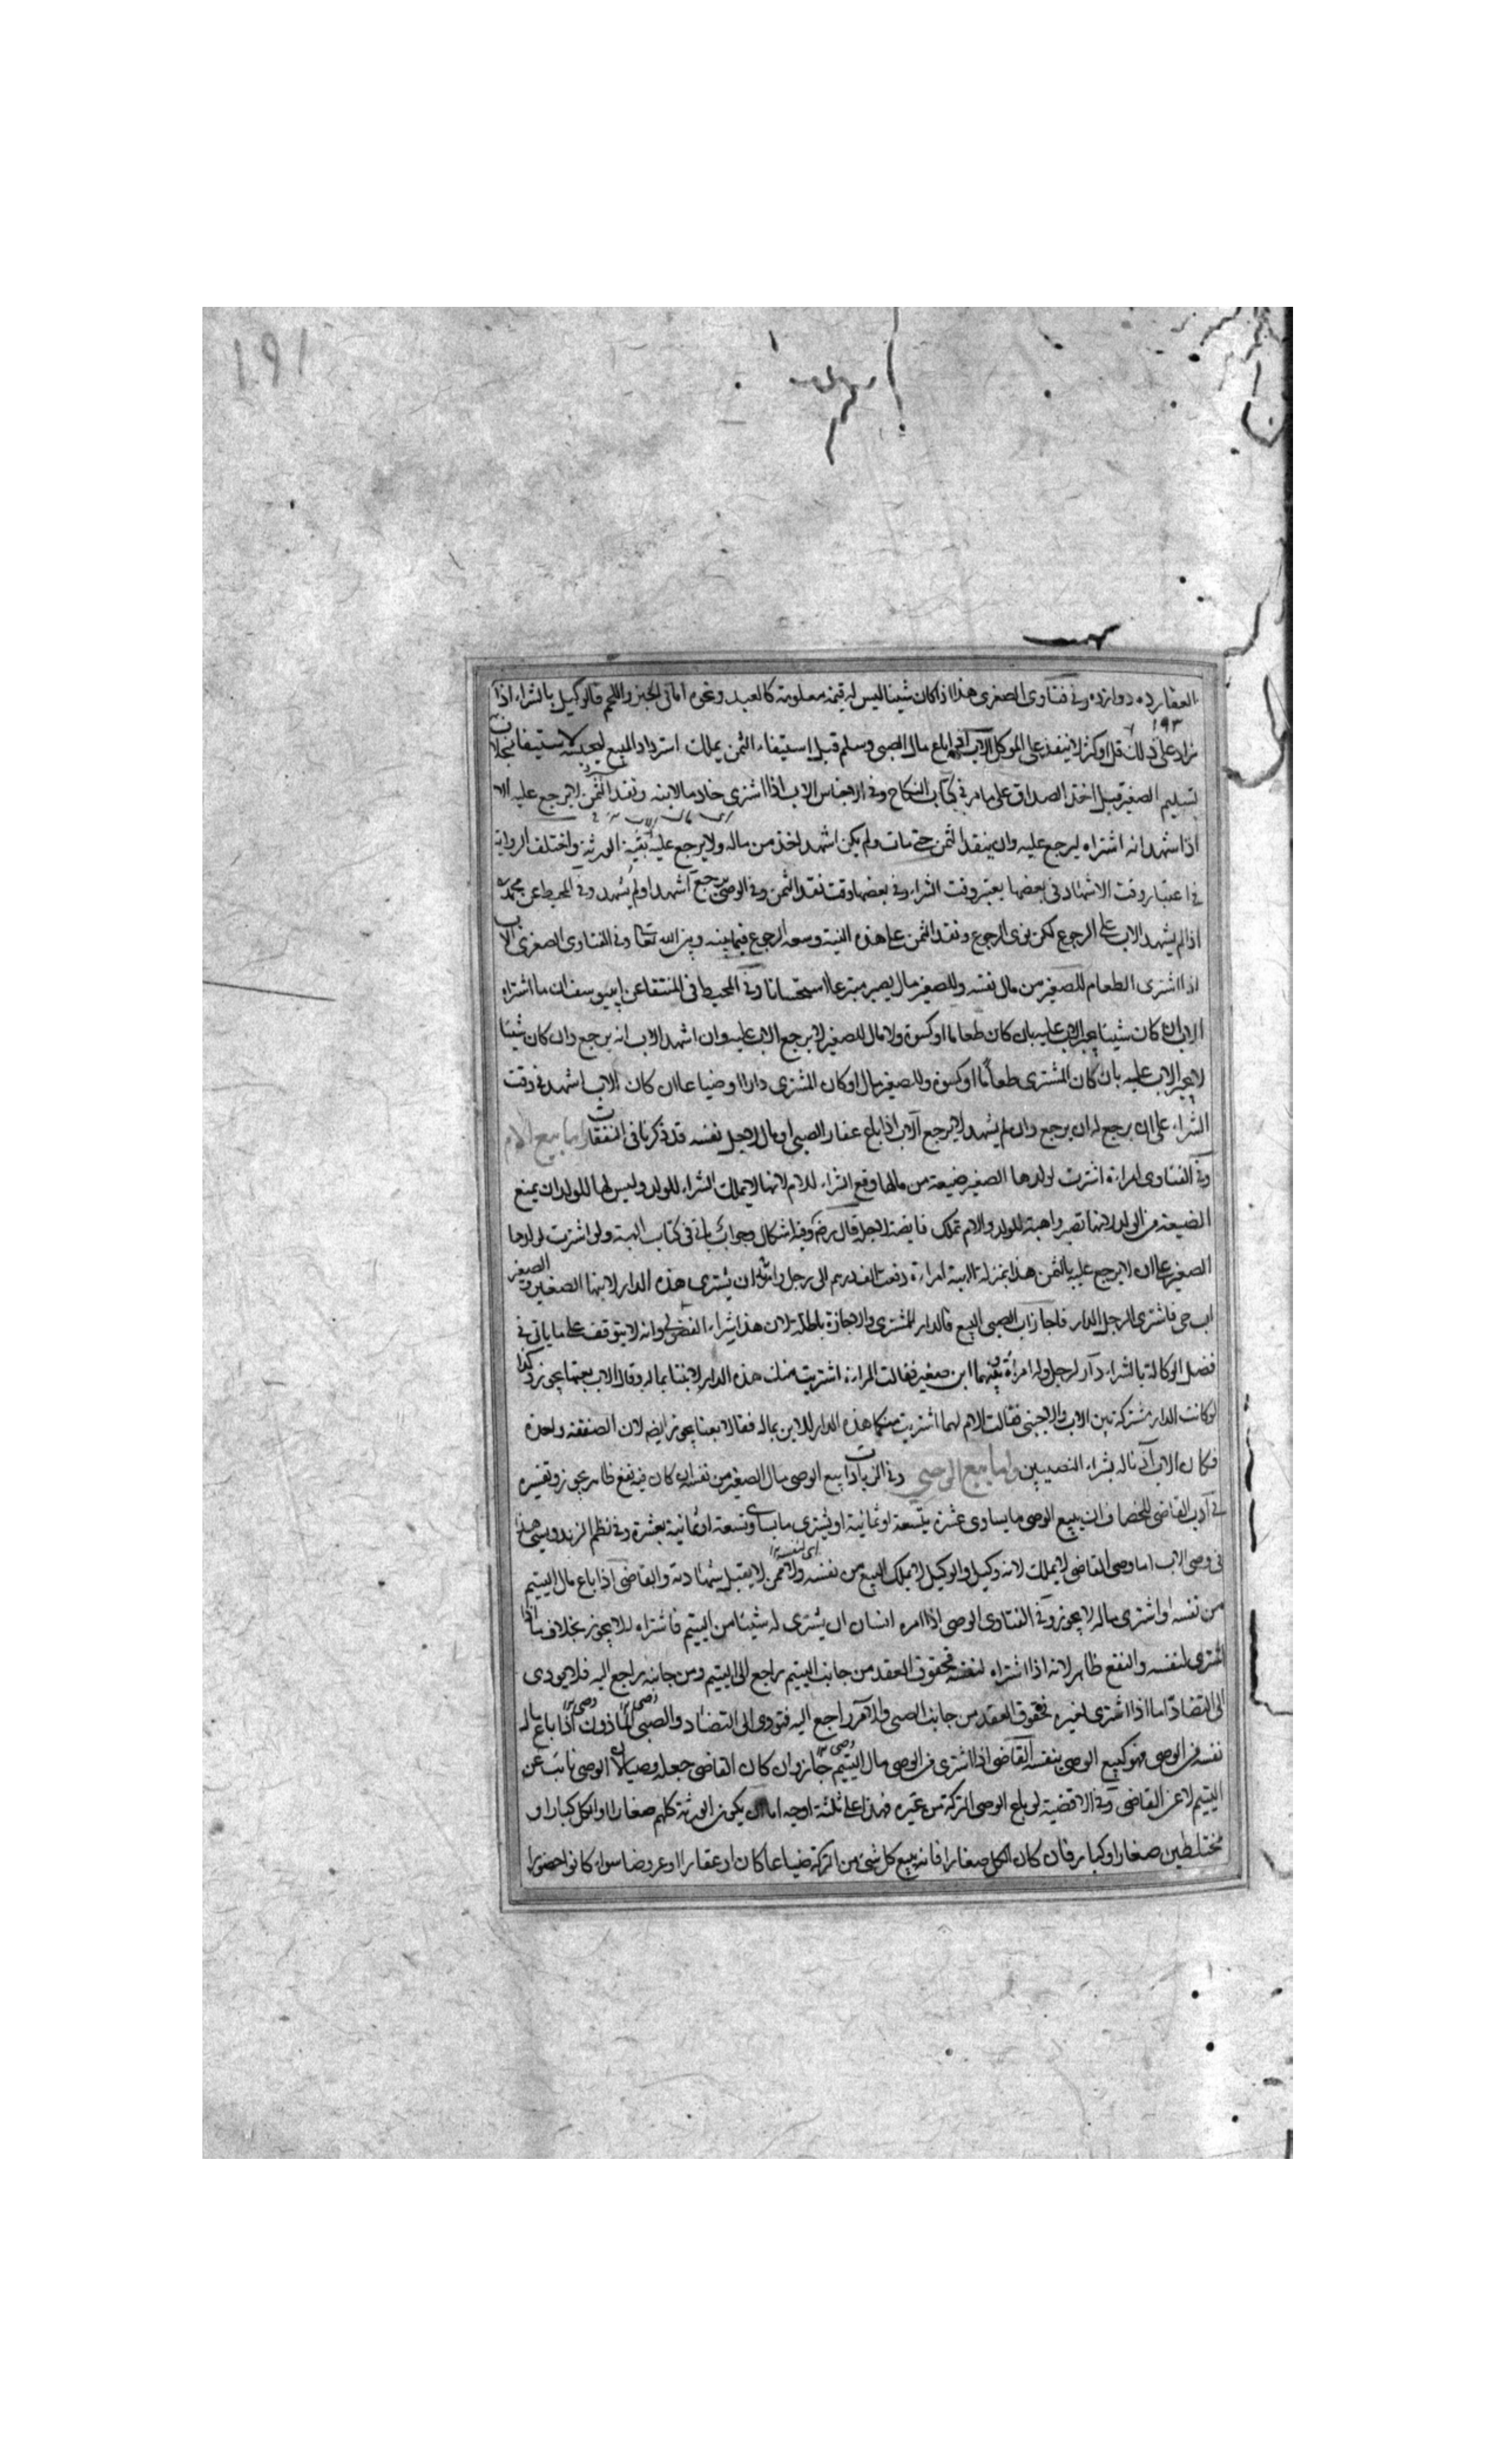 191
العقار ده دوازده وفي فتاوى الصغرى هذا اذا كان شيئا ليس له قيمة معلومة كالعبد ونحوه اما في الخبز واللحم فالوكيل بالشراء اذا
زاد على ذلك قل او كثر لا ينفذ على الموكل الاب اذا باع مال الصبي وسلم قبل استيفاء الثمن يملك استرداد المبيع ليحبسه لاستيفاء بخلاف
تسليم الصغيرة قبل اخذ الصداق على ما مر في كتاب النكاح وفي الاجناس الاب اذا اشترى خادما لابنه ونقد الثمن لا يرجع عليه الا
اذا اشهد انه اشتراه ليرجع عليه وان لم ينقد الثمن حتى مات ولم يكن اشهد اخذ من ماله ولا يرجع عليه بقية الورثة واختلف الرواية
في اعتبار وقت الاشهاد في بعضها يعتبر وقت الشراء وفي بعضها وقت نقد الثمن وفي الوصي يرجع اشهد او لم يشهد وفي المحيط عن محمد
اذا لم يشهد الاب على الرجوع لكن نوى الرجوع ونقد الثمن على هذه النية وسعه الرجوع فيما بينه وبين الله تعالى وفي الفتاوى الصغرى الاب
اذا اشترى الطعام للصغير من مال نفسه وللصغير مال يصير متبرعا استحسانا وفي المحيط في المنتقى عن ابي يوسف ان ما اشتراه
الاب ان كان شيئا يجبر الاب عليه بان كان طعاما او كسوة ولا مال للصغير لا يرجع الاب عليه وان اشهد الاب انه يرجع وان كان شيئا
لا يجبر الاب عليه بان كان المشترى طعاما او كسوة وللصغير مال او كان المشترى دارا او ضياعا ان كان الاب اشهد في وقت
الشراء على ان يرجع له ان يرجع وان لم يشهد لا يرجع الاب اذا باع عقار الصبي او مال لاجل نفسه قد ذكرنا في النفقات اما بيع الام
وفي الفتاوى امراة اشترت لولدها الصغير ضيعة من مالها وقع الشراء للام لانها لا تملك الشراء للولد وليس لها للولد ان يمنع
الضيعة من الولد لانها تصير واهبة للولد والام تملك قابضة لاجله قال رضي وفيه اشكال وجوابه ياتي في كتاب الهبة ولو اشترت لولدها
الصغير على ان لا يرجع عليه بالثمن هذا بمنزلة الهبة امراة دفعت الف درهم الى رجل وامرته ان يشترى هذه الدار لابنها الصغير وللصغير
اب حي فاشترى الرجل الدار فاجاز اب الصبي البيع فالدار للمشترى والاجازة باطلة لان هذا شراء الفضولي وانه لا يتوقف على ما ياتي في
فصل الوكالة بالشراء دار لرجل وله امراة وبينهما ابن صغير فقالت المراة اشتريت منك هذه الدار لابننا بماله وقال الاب بعتها يجوز وكذا
لو كانت الدار مشتركة بين الاب والاجنبي فقالت الام لهما اشتريت منكما هذه الدار للابن بماله فقالا بعنا يجوز ايضا لان الصفقة واحدة
فكان الاب اذنا له بشراء النصيبين واما بيع الوصي وفي الزيادات بيع الوصي مال الصغير من نفسه ان كان فيه نفع ظاهر يجوز وتفسيره
في ادب القاضي للخصاف ان يبيع الوصي ما يساوى عشرة بتسعة او ثمانية او يشترى ما يساوى تسعة او ثمانية بعشرة وفي نظم الزندويستي هذا
في وصي الاب اما وصي القاضي لا يملك لانه وكيل والوكيل لا يملك البيع من نفسه ولا ممن لا يقبل شهادته والقاضي اذا باع مال اليتيم
من نفسه او اشترى ماله لا يجوز وفي الفتاوى الوصي اذا امره انسان ان يشترى له شيئا من اليتيم فاشتراه لا يجوز بخلاف ما اذا
اشترى لنفسه والنفع ظاهر لانه اذا اشتراه لنفسه فحقوق العقد من جانب اليتيم راجع الى اليتيم ومن جانبه راجع اليه فلا يودى
الى التضاد اما اذا اشترى لغيره فحقوق العقد من جانب الصبي والآمر راجع اليه فتودى الى التضاد والصبي الماذون اذا باع ماله
نفسه من الوصي فهو كبيع الوصي بنفسه القاضي اذا اشترى من الوصي مال اليتيم جاز وان كان القاضي جعله وصيا لان الوصي نائب عن
اليتيم لا عن القاضي وفي الاقضية لو باع الوصي التركة من غيره فهذا على ثلثة اوجه اما ان يكون الورثة كلهم صغارا او الكل كبارا او
مختلطين صغارا وكبارا فان كان الكل صغارا فانه يبيع كل شيء من التركة ضياعا كان او عقارا او عروضا سواء كانوا حضورا